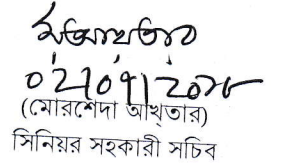 ০২/০৭/২০২৮
(মোরশেদা আখ্তার)
সিনিয়র সহকারী সচিব